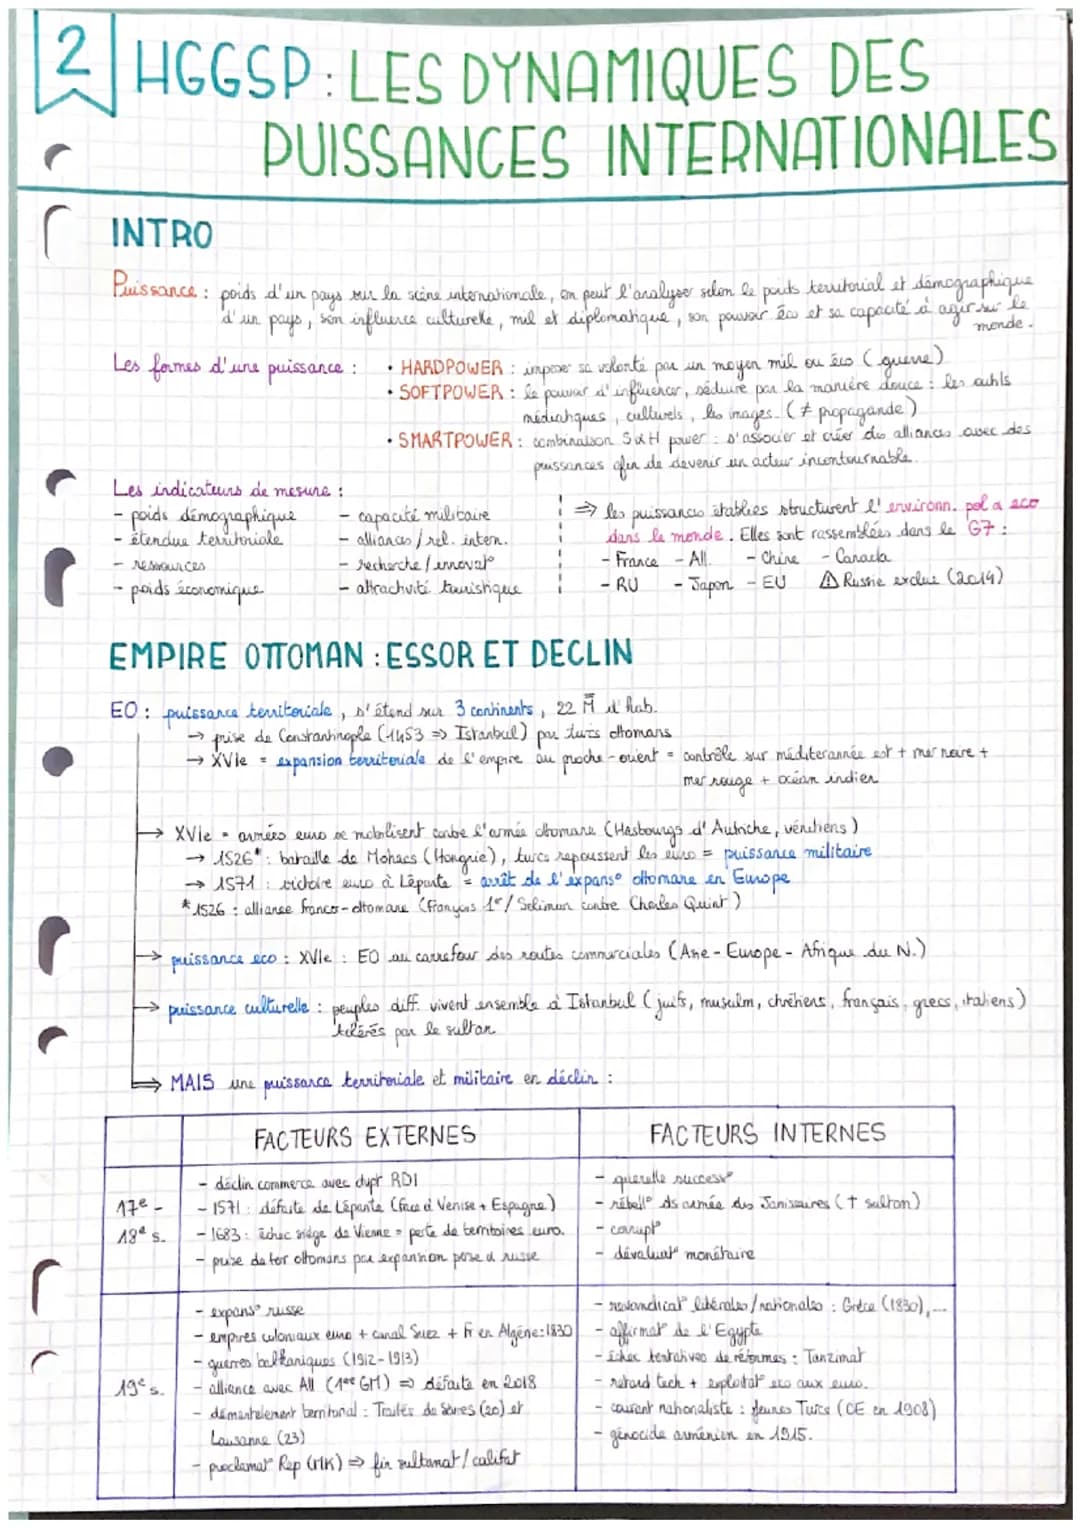 2 HGGSP : LES DYNAMIQUES DES
PUISSANCES INTERNATIONALES
INTRO
Puissance : poids d'un pays sur la scène internationale, on peut l'analyser selon le poids territorial et démographique
d'un pays, son influence culturelle, mil et diplomatique, son pouvoir éco et sa capacité à agir sur le
monde.
Les formes d'une puissance : • HARDPOWER : imposer sa volonté par un moyen mil ou éco (guerre)
• SOFTPOWER : le pouvoir d'influencer, séduire par la manière douce : les outils
médiatiques, culturels, les images. (≠ propagande)
• SMARTPOWER : combinaison S et H power : s'associer et créer des alliances avec des
puissances afin de devenir un acteur incontournable.
Les indicateurs de mesure :
- poids démographique
- étendue territoriale
- ressources
- poids économique
- capacité militaire
- alliances / rel. intern.
- recherche / innovat°
- attractivité touristique
⇒ les puissances établies structurent l'environn. pol a eco
dans le monde. Elles sont rassemblées dans le G7 :
- France - All. - Chine - Canada
- RU - Japon - EU ⚠ Russie exclue (2014)
EMPIRE OTTOMAN : ESSOR ET DECLIN
EO : puissance territoriale, s'étend sur 3 continents, 22 M d'hab.
→ prise de Constantinople (1453 ⇒ Istanbul) par turcs ottomans
→ XVIe = expansion territoriale de l'empire au proche-orient = contrôle sur méditerannée est + mer noire +
mer rouge + océan indien
→ XVIe = armées euro se mobilisent contre l'armée ottomane (Hasbourgs d'Autriche, vénitiens)
→ 1526* : bataille de Mohacs (Hongrie), turcs repoussent les euro = puissance militaire
→ 1571 : victoire euro à Lépante = arrêt de l'expans° ottomane en Europe
* 1526 : alliance franco-ottomane (François 1er / Soliman contre Charles Quint)
→ puissance eco : XVIe : EO au carrefour des routes commerciales (Asie - Europe - Afrique du N.)
→ puissance culturelle : peuples diff. vivent ensemble à Istanbul (juifs, musulm, chrétiens, français, grecs, italiens)
tolérés par le sultan
⇒ MAIS une puissance territoriale et militaire en déclin :
FACTEURS EXTERNES
FACTEURS INTERNES
17e -
18e s.
- déclin commerce avec dvpt RDI
- 1571 : défaite de Lépante (face à Venise + Espagne)
- 1683 : échec siège de Vienne = perte de territoires euro.
- prise de ter ottomans par expansion perse et russe
- querelle success°
- rébell° ds armée des Janissaires († sultan)
- corrupt°
- dévaluat° monétaire
19e s.
- expans° russe
- empires coloniaux euro + canal Suez + Fr en Algérie : 1830
- guerres balkaniques (1912-1913)
- alliance avec All (1ère GM) ⇒ défaite en 2018
- démantelement territorial : Traités de Sèvres (20) et
Lausanne (23)
- proclamat° Rep (MK) ⇒ fin sultanat / califat
- revendicat° libérales / nationales : Grèce (1830), ...
- affirmat° de l'Egypte
- échec tentatives de réformes : Tanzimat
- retard tech + exploitat° eco aux euro.
- courant nationaliste : Jeunes Turcs (CE en 1908)
- génocide arménien en 1915.